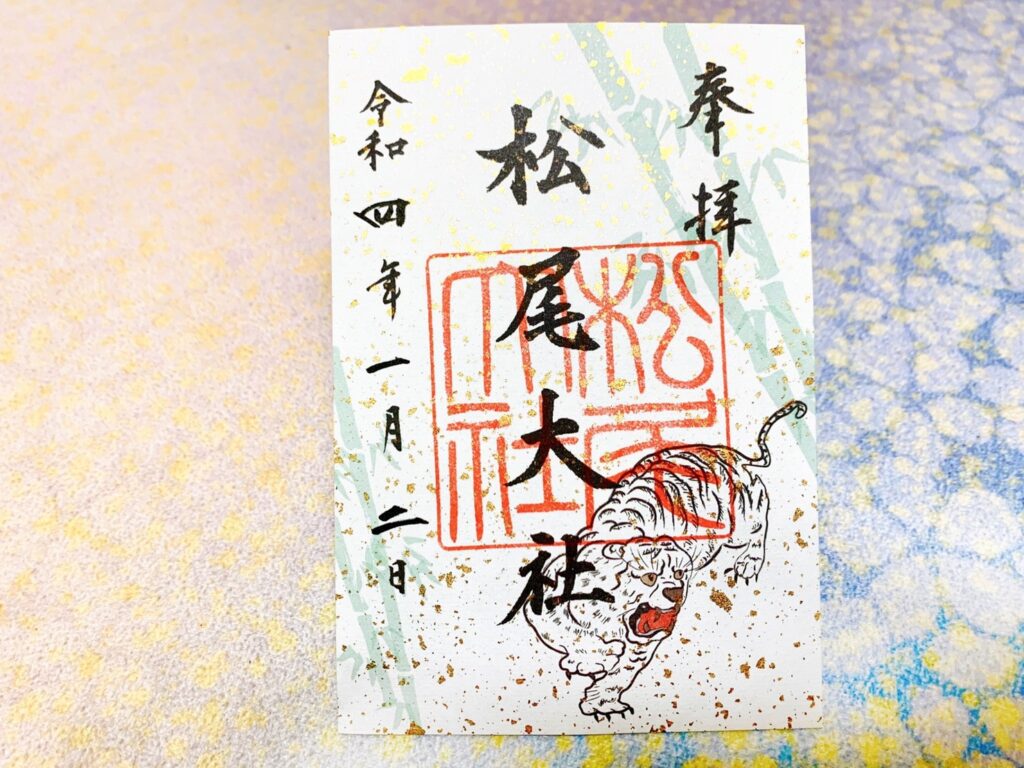 奉拝
松尾大社
松尾大社
令和四年一月二日